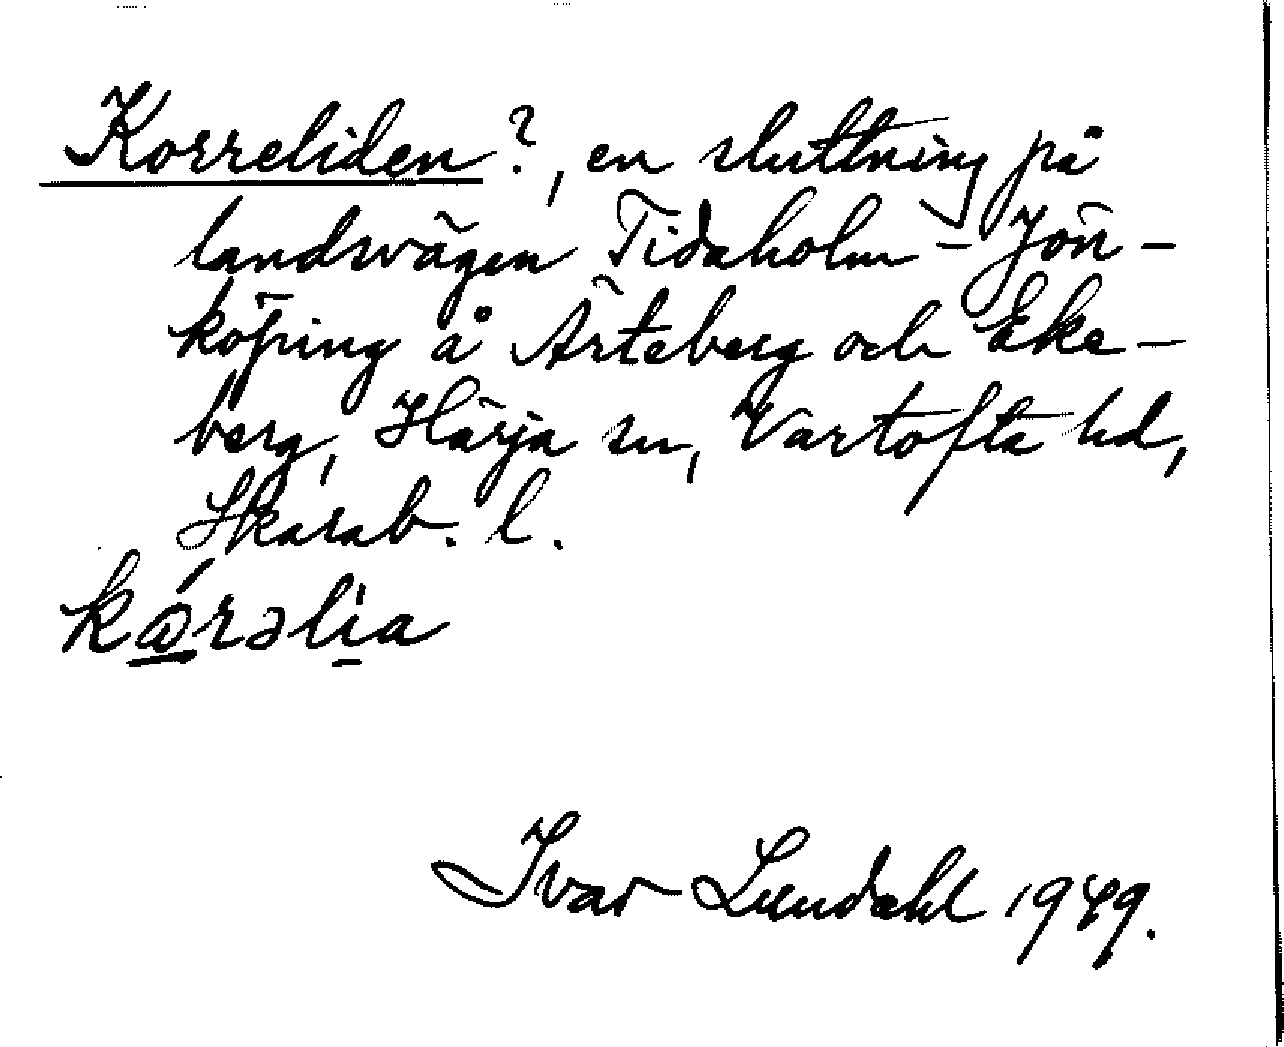 Korreliden?, en sluttning på
landsvägen Tidaholm – Jön-
köping å Ärteberg och Eke-
berg, Härja sn, Vartofta hd,
Skarab. l.
kǿrəli̱a
Ivar Lundahl 1949.